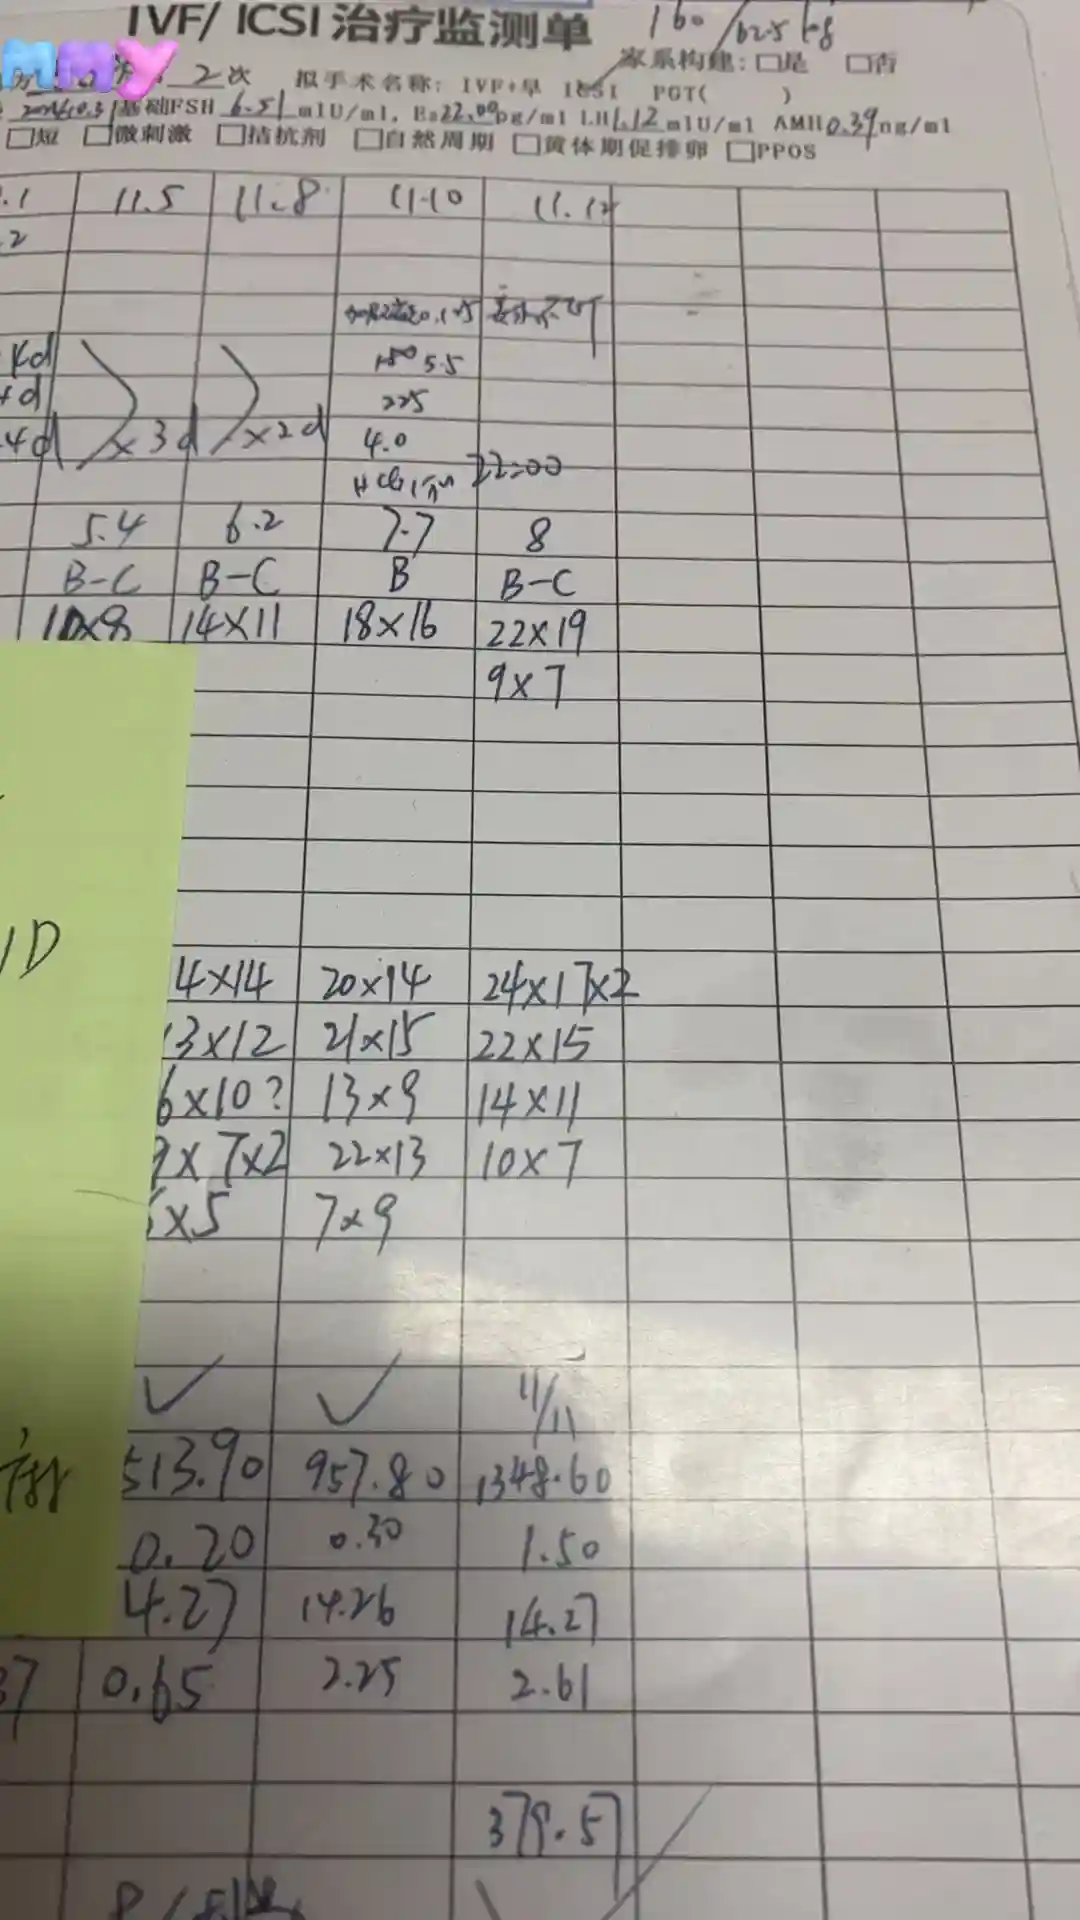 IVF/ ICSI 治疗监测单
160/62.5 kg
MMY
2次 拟手术名称: IVF+早 ICSI PGT( )
家系构建: □是 □否
基础FSH 6.51 mIU/ml, E₂22.00pg/ml LH1.12mIU/ml AMH0.39ng/ml
□短 □微刺激 □拮抗剂 □自然周期 □黄体期促排卵 □PPOS
.1 11.5 11.8 11.10 11.12
.2
4d 150 5.5
4d 225
4d ×3d ×2d 4.0
HCG 22:00
5.4 6.2 7.7 8
B-C B-C B B-C
10×8 14×11 18×16 22×19
9×7
1D
4×14 20×14 24×17×2
13×12 21×15 22×15
6×10? 13×9 14×11
9×7×2 22×13 10×7
×5 7×9
✓ ✓ 11/11
513.90 957.80 1348.60
0.20 0.30 1.50
4.27 14.26 14.27
37 0.65 2.25 2.61
379.57